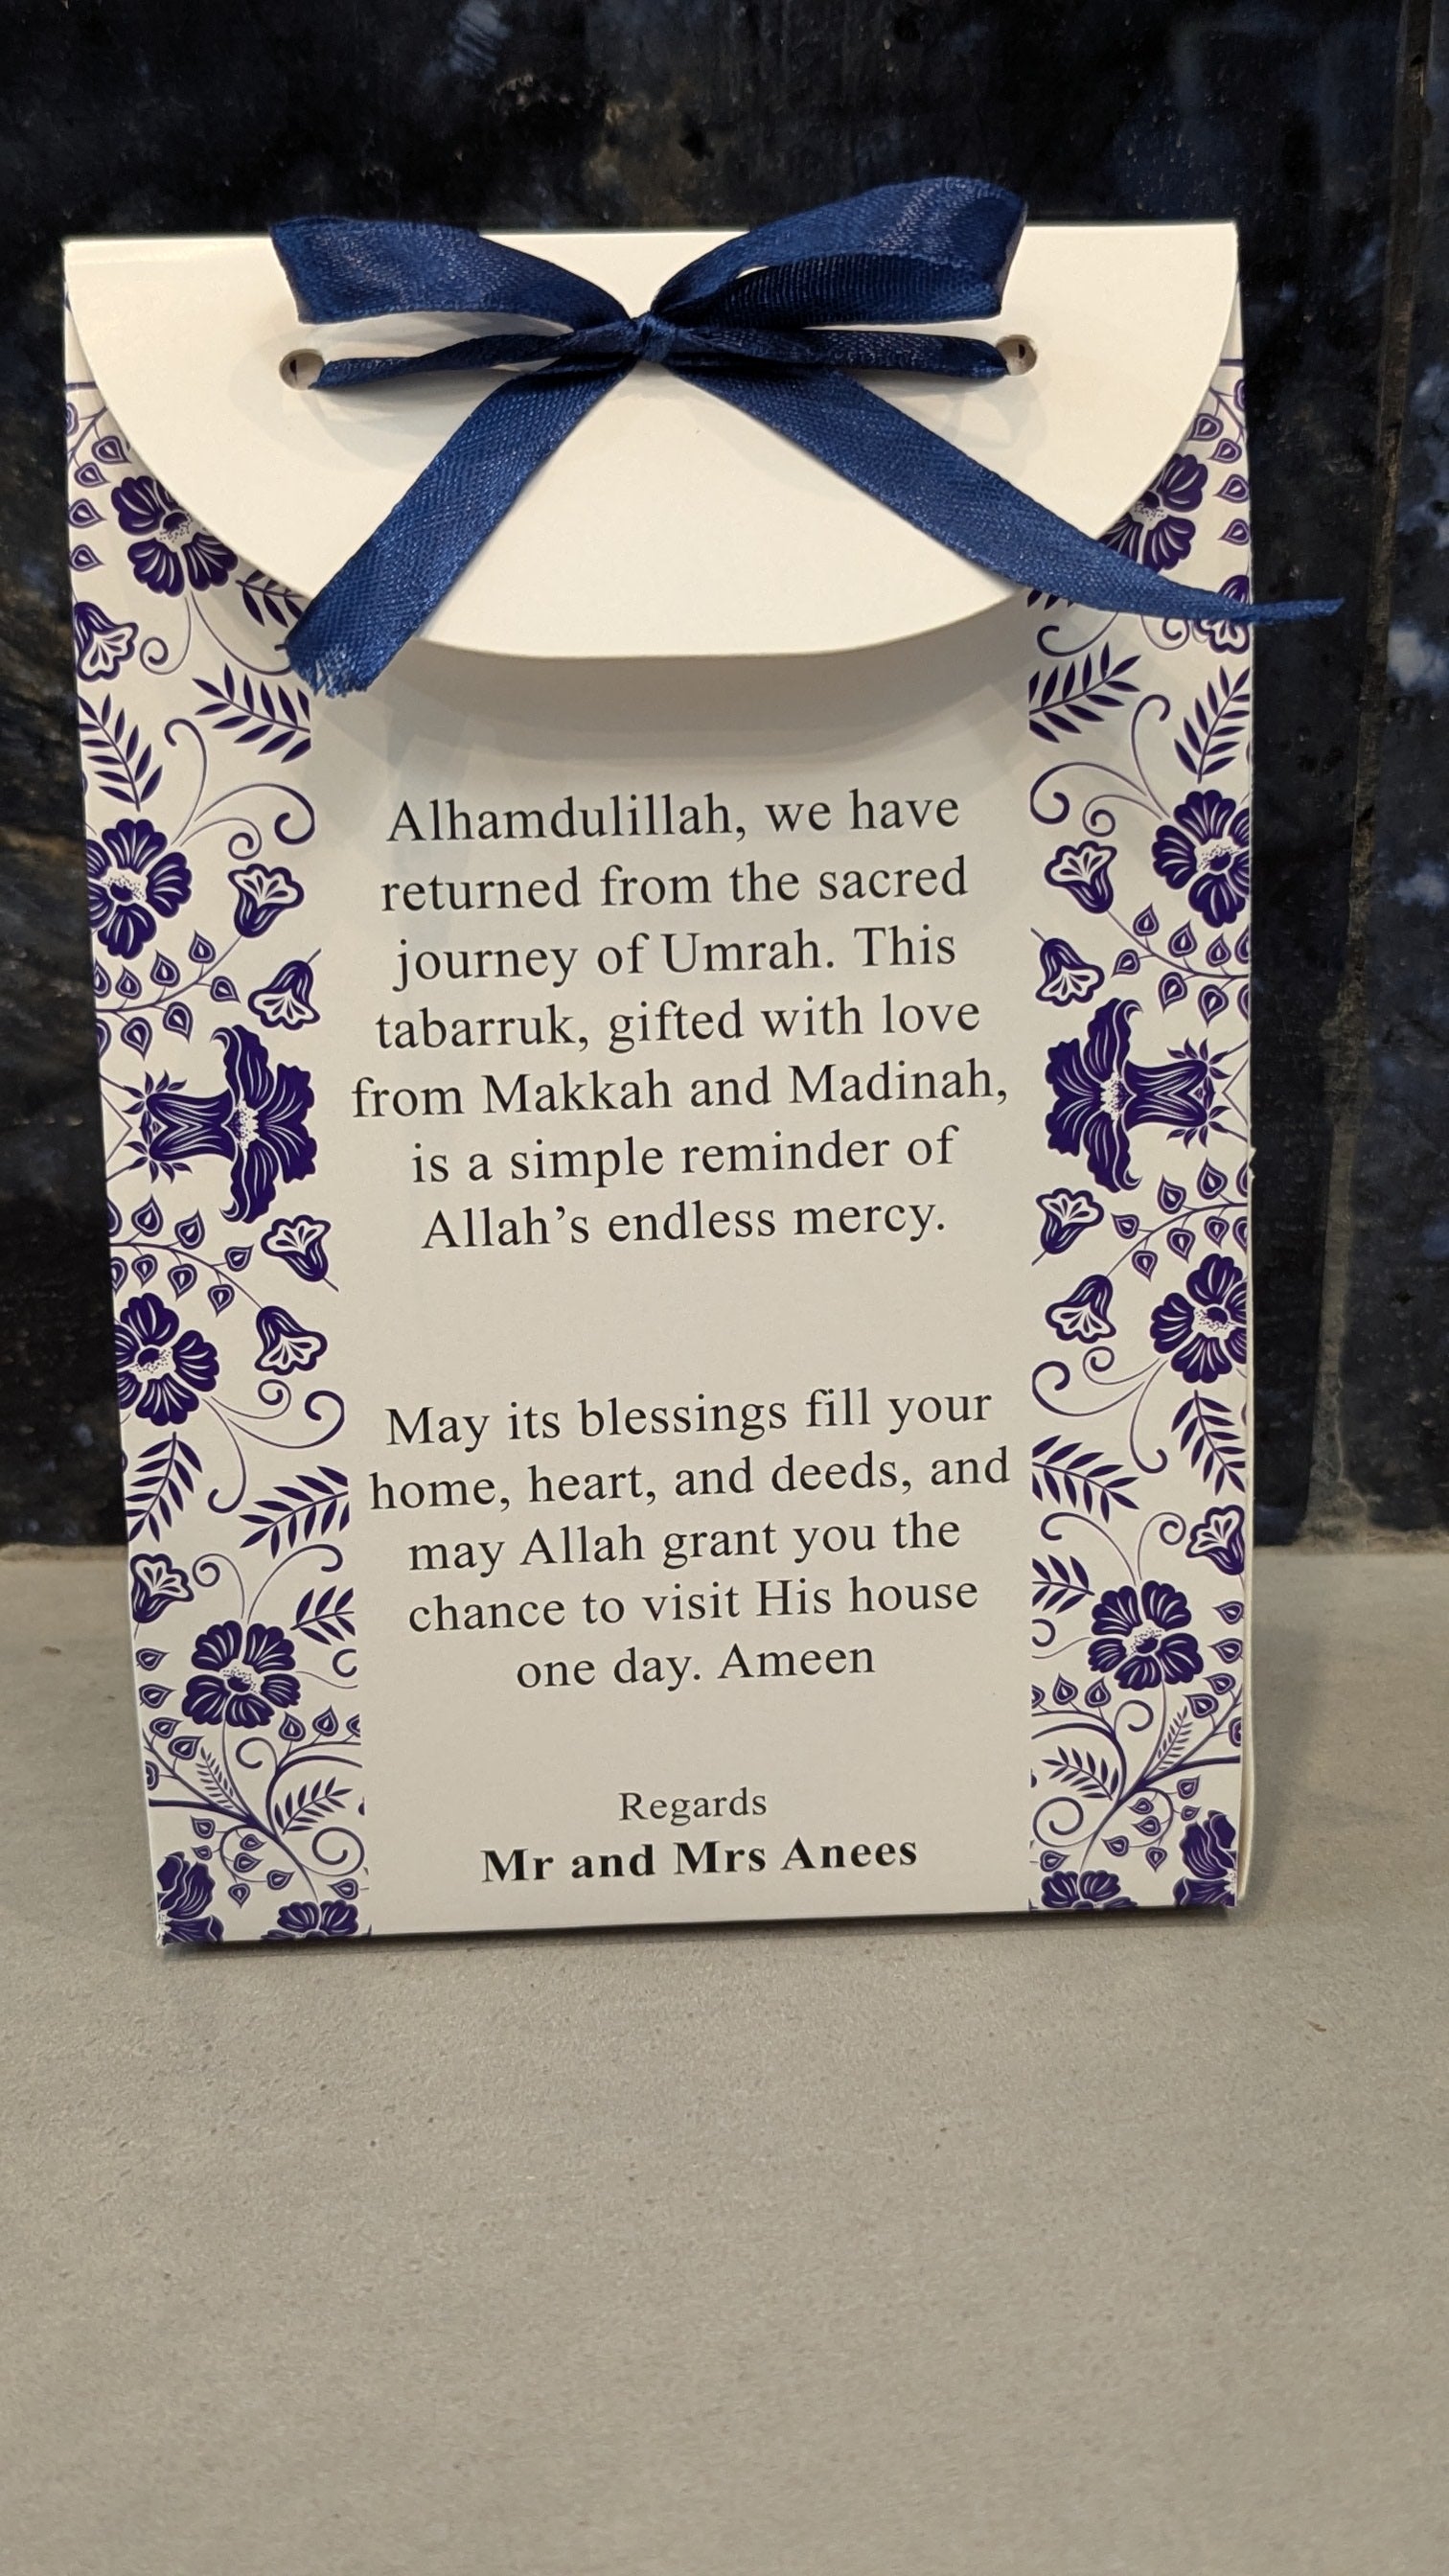 Alhamdulillah, we have
returned from the sacred
journey of Umrah. This
tabarruk, gifted with love
from Makkah and Madinah,
is a simple reminder of
Allah’s endless mercy.
May its blessings fill your
home, heart, and deeds, and
may Allah grant you the
chance to visit His house
one day. Ameen
Regards
Mr and Mrs Anees